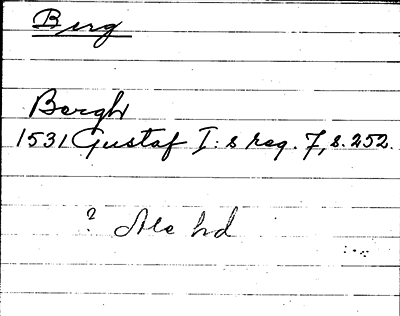 Berg
Bergh
1531 Gustaf I:s reg. 7, s. 252.
? Ale hd